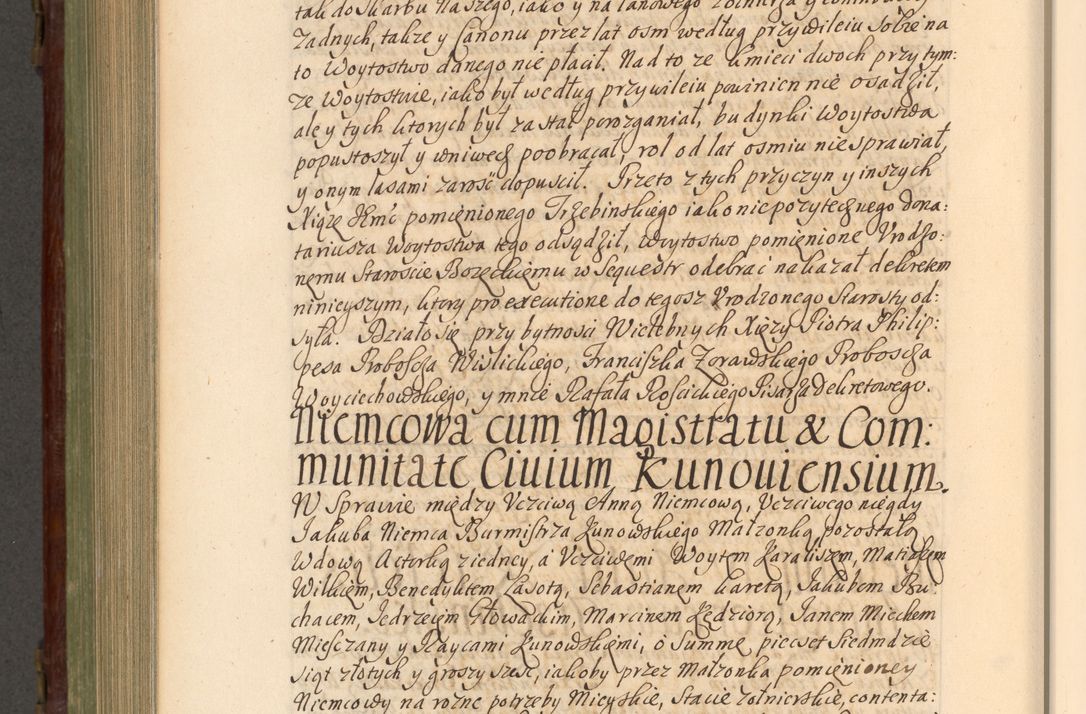 tak do skarbu Naszego, iako y na łanowego żołnierza y contribucij
żadnych, także y Canonu przez lat osm według przywileiu sobie na
to Woytostwo danego nie płacił. Nad to że kmieci dwoch przy tym:
że Woytostwie, iako był według przywileiu powinien nie osadził,
ale y tych ktorych był zastał porozganiał, budynki Woytostwa
popustoszył y wniwecz poobracał, rol od lat osmiu nie sprawiał,
y onym lasami zarość dopuscił. Przeto z tych przyczyn y inszych
Xiąże JEmc pomienionego Trzebinskiego iako niepożytecznego dona:
tariusza Woytostwa tego odsądził, woytostwo pomienione Vrodzo:
nemu Staroscie Borzęckiemu w Sequestr odebrać nakazał dekretem
ninieyszym, ktory pro executione do tegosz Vrodzonego Starosty od:
syła. Działo się przy bytnosci Wielebnych Xięży Piotra Philip:
pesa Proboscza Wislickiego, Franciszka Zorawskiego Proboscza
Woyciechowskiego, y mnie Rafała Rościckiego Pisarza dekretowego.
Niemcowa cum Magistratu & Com:
munitate Ciuium Kunouiensium.
W Sprawie między Vczciwą Anną Niemcową, Vczciwego niegdy
Iakuba Niemca Burmistrza Kunowskiego Małżonką pozostałą
Wdową Actorką z iedney, a Vczciwemi Woytem Karaliszem, Matiaszem
Wilkiem, Benedyktem Lasotą, Sebastianem Karetą, Iakubem Bu:
chacem, Jedrzeiem Głowackim, Marcinem Kędziorą, Ianem Miechem
Mieszczany y Raycami Kunowskiemi, o Summę piecset Siedmdzie
siąt złotych y groszy szesc, iakoby przez Małżonka pomienioney
Niemcowy na rożne potrzeby Mieyskie, Stacie żołnierskie, contenta: